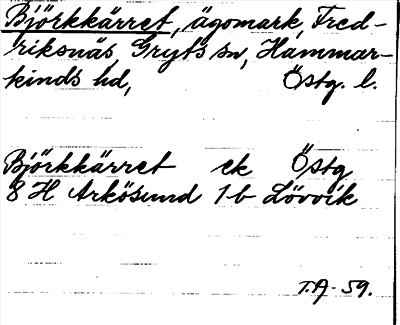 Björkkärret, ägomark, Fred-
riksnäs, Gryts sn, Hammar-
kinds hd, Östg. l.
Björkkärret ek Östg
8 H Arkösund 1 b Lövvik
T.A-59.